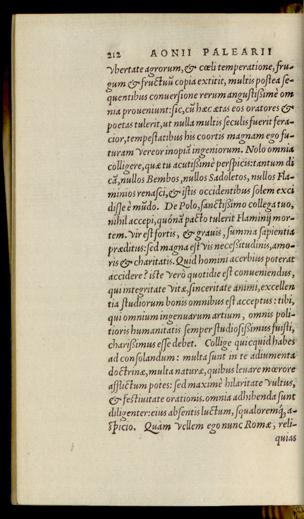 212 AONII PALEARII
vbertate agrorum, & cœli temperatione, fru-
gum & fructuũ copia extitit, multis postea se-
quentibus conversione rerum angustissimè om
nia proveniunt: sic, cũ hæc ætas eos oratores &
poetas tulerit, ut nulla multis seculis fuerit fera-
cior, tempestatibus his coortis magnam ego fu-
turam vereor inopiã ingeniorum. Nolo omnia
colligere, quæ tu acutissimè perspicis: tantum di
cã, nullos Bembos, nullos Sadoletos, nullos Fla-
minios renasci, & istis occidentibus solem exci
disse è mũdo. De Polo, sanctissimo collega tuo,
nihil accepi, quónã pacto tulerit Flaminij mor-
tem. Vir est fortis, & gravis, summa sapientia
præditus: sed magna est vis necessitudinis, amo-
ris & charitatis. Quid homini acerbius poterat
accidere? iste verò quotidie est conveniendus,
qui integritate vitæ, sinceritate animi, excellen
tia studiorum bonis omnibus est acceptus: tibi,
qui omnium ingenuarum artium, omnis poli-
tioris humanitatis semper studiosissimus fuisti,
charissimus esse debet. Collige quicquid habes
ad consolandum: multa sunt in te adiumenta
doctrinæ, multa naturæ, quibus levare mœrore
afflictum potes: sed maximè hilaritate vultus,
& festivitate orationis. omnia adhibenda sunt
diligenter: eius absentis luctum, squaloremq́; a-
spicio. Quàm vellem ego nunc Romæ, reli-
quias